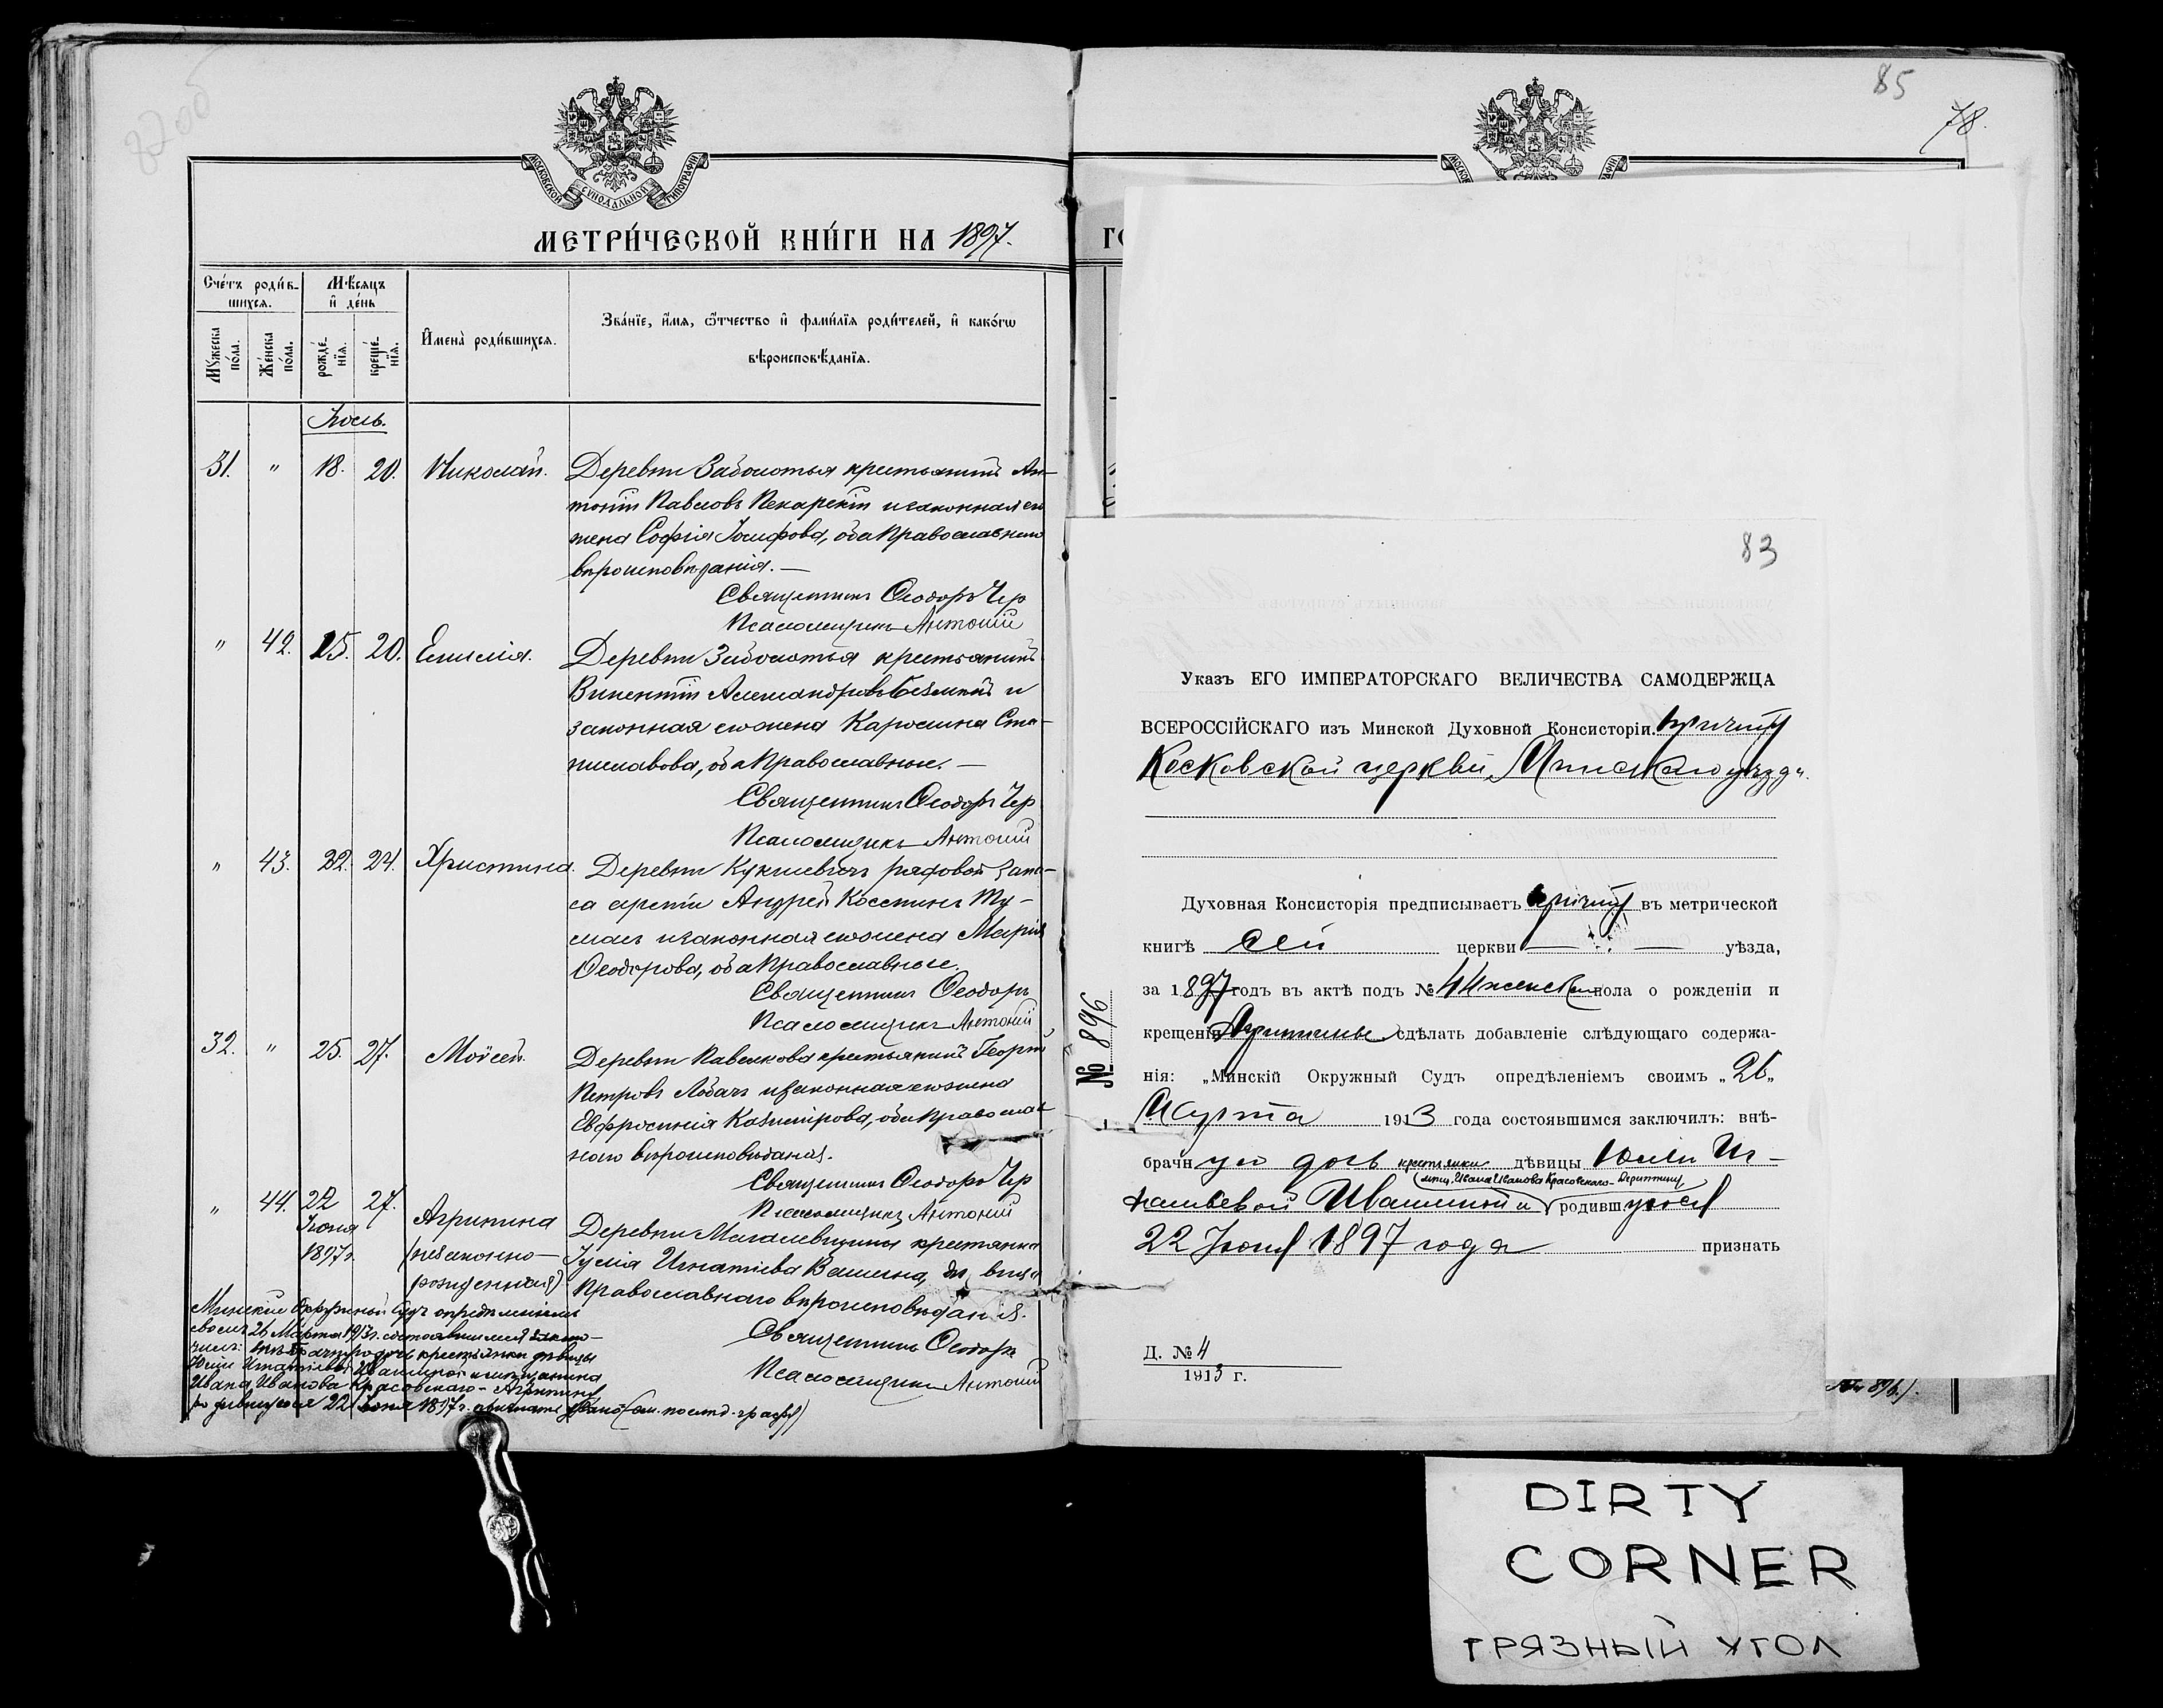 82об
МОСКОВСКОЙ СѴНОДАЛЬНОЙ ТИПОГРАФІИ
МЕТРИ́ЧЕСКОЙ КНИ́ГИ НА 1897.
Сче́тъ роди́в-
шихся.
Мѣ́сяцъ
и҆ де́нь
Му́жеска
по́ла.
Же́нска
по́ла.
рожде́-
нїѧ.
креще́-
нїѧ.
И҆мена̀ роди́вшихся.
Зва́нїе, и҆́мѧ, ѻ҆́тчество и҆ фами́лїѧ роди́телей, и҆ како́гѡ
вѣроисповѣ́данїѧ.
Іюль.
31. " 18. 20. Николай. Деревни Заболотья крестьянинъ Ан-
тоній Павловъ Пекарскій и законная его
жена Софія Іосифова, оба Православнаго
вѣроисповѣданія. —
Священникъ Ѳеодоръ Чер
Псаломщикъ Антоній
" 42. 15. 20. Емилія. Деревни Заболотья крестьянинъ
Викентій Александровъ и
законная его жена Каролина Ста-
ниславова, оба Православные. —
Священникъ Ѳеодоръ Чер
Псаломщикъ Антоній
" 43. 22. 24. Христина. Деревни Куклевичъ рядовой запа-
са арміи Андрей Ту-
маш и законная его жена Марія
Ѳеодорова, оба Православные.
Священникъ Ѳеодоръ
Псаломщикъ Антоній
32. " 25. 27. Моѵсей. Деревни Павелкова крестьянинъ Георгій
Петровъ Лобачъ и законная его жена
Евфросинія Казимірова, оба Православ-
наго вѣроисповѣданія.
Священникъ Ѳеодоръ Чер
Псаломщикъ Антоній
" 44. 22 27. Агрипина Деревни крестьянка
Іюня
1897г. (незаконно- Іулія Игнатіева Вашина, дѣвица
рожденная) Православнаго вѣроисповѣданія.
Священникъ Ѳеодоръ
Псаломщикъ Антоній
Минскій Окружный Судъ опредѣленіемъ
своимъ 26 Марта 1913г. состоявшимся заклю-
чилъ: внѣбрачную дочь крестьянки дѣвицы
Юліи Игнатьевой Ивашиной и мѣщанина
Ивана Иванова Красовскаго - Агрипину
родившуюся 22 Іюня 1897г. признать (см. послѣд. графу)
85
78.
83
Указъ ЕГО ИМПЕРАТОРСКАГО ВЕЛИЧЕСТВА САМОДЕРЖЦА
ВСЕРОССІЙСКАГО изъ Минской Духовной Консисторіи причту
Косковской церкви, Минскаго уѣзда.
Духовная Консисторія предписываетъ причту въ метрической
книгѣ сей церкви — уѣзда,
за 1897 годъ въ актѣ подъ № 44 женск пола о рожденіи и
крещеніи Агрипины сдѣлать добавленіе слѣдующаго содержа-
нія: „Минскій Окружный Судъ опредѣленіемъ своимъ „26„
Марта 1913 года состоявшимся заключилъ: внѣ-
брачную дочь крестьянки дѣвицы Юліи Иг-
(мѣщ. Ивана Иванова Красовскаго - Агрипину
натьевой Ивашиной и родившуюся
22 Іюня 1897 года признать
№ 896
Д. № 4
1913 г.
№ 896.).
DIRTY
CORNER
ГРЯЗНЫЙ УГОЛ